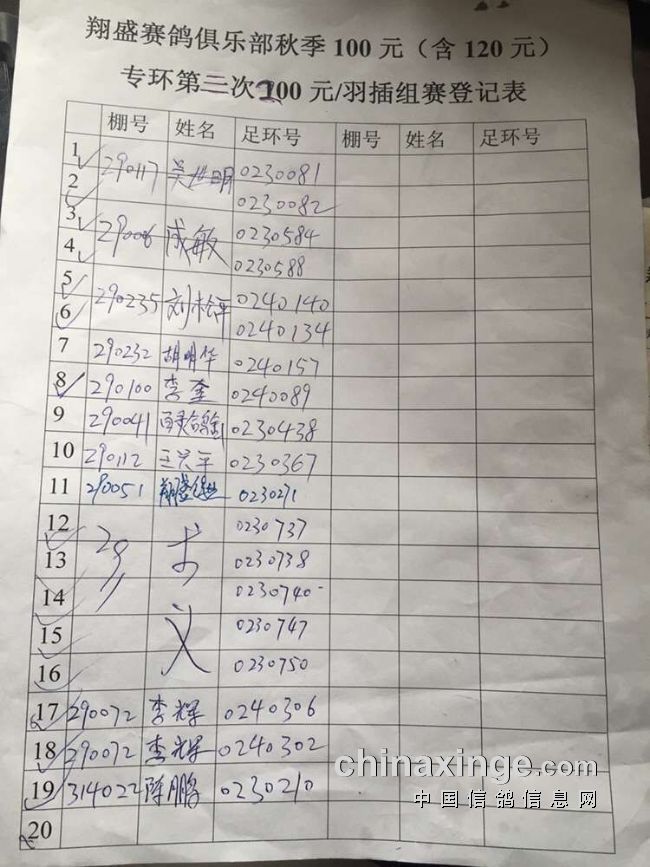 翔盛赛鸽俱乐部秋季100元（含120元）
专环第三次100元/羽插组赛登记表
棚号 姓名 足环号 棚号 姓名 足环号
1 290117 0230081
2 0230082
3 29006 成敏 0230584
4 0230588
5 290235 刘松平 0240140
6 0240134
7 290232 胡明华 0240157
8 290100 李奎 0240089
9 290041 0230438
10 290112 王兴平 0230367
11 290051 0230271
12 0230737
13 0230738
14 0230740
15 0230747
16 0230750
17 290072 李辉 0240306
18 290072 李辉 0240302
19 314022 陈鹏 0230210
20
chinaxinge.com
中国信鸽信息网